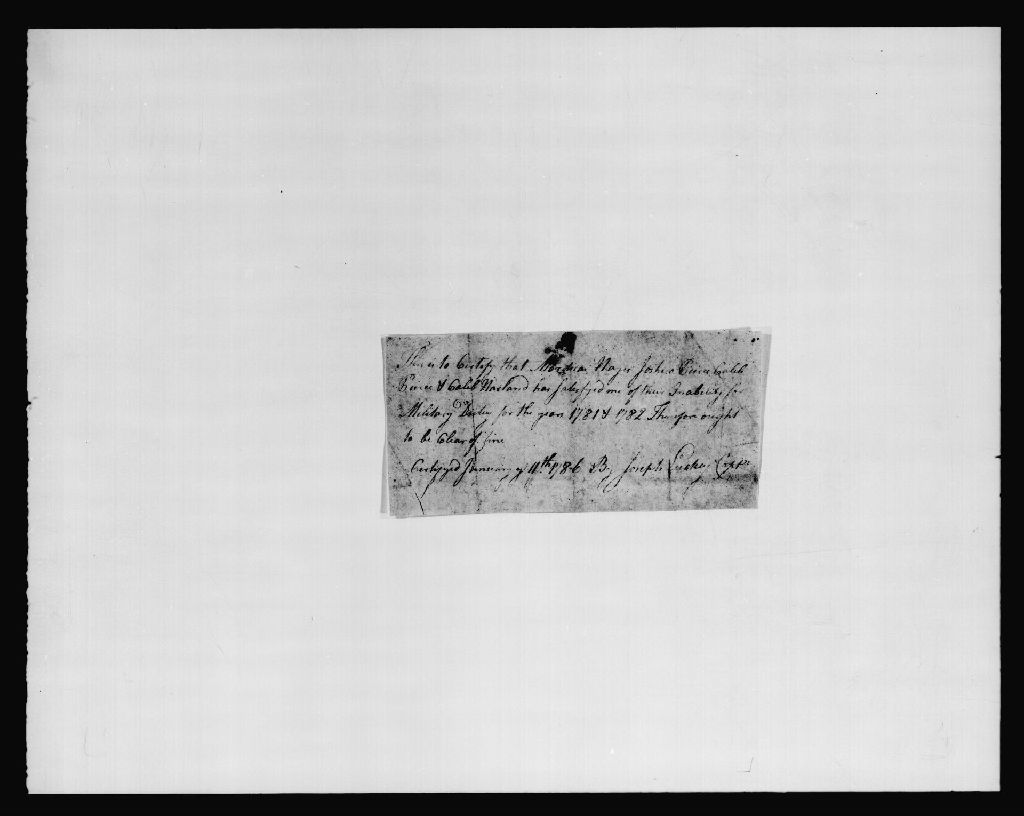 This is to Certify that Mordecai Hayes Joshua Pierce Caleb
Pierce & Caleb Harland has satisfyed me of their Inability for
Military Duty for the years 1781 & 1782 Therefore ought
to be Clear of fine
Certifyed January 11th 1786 By Joseph